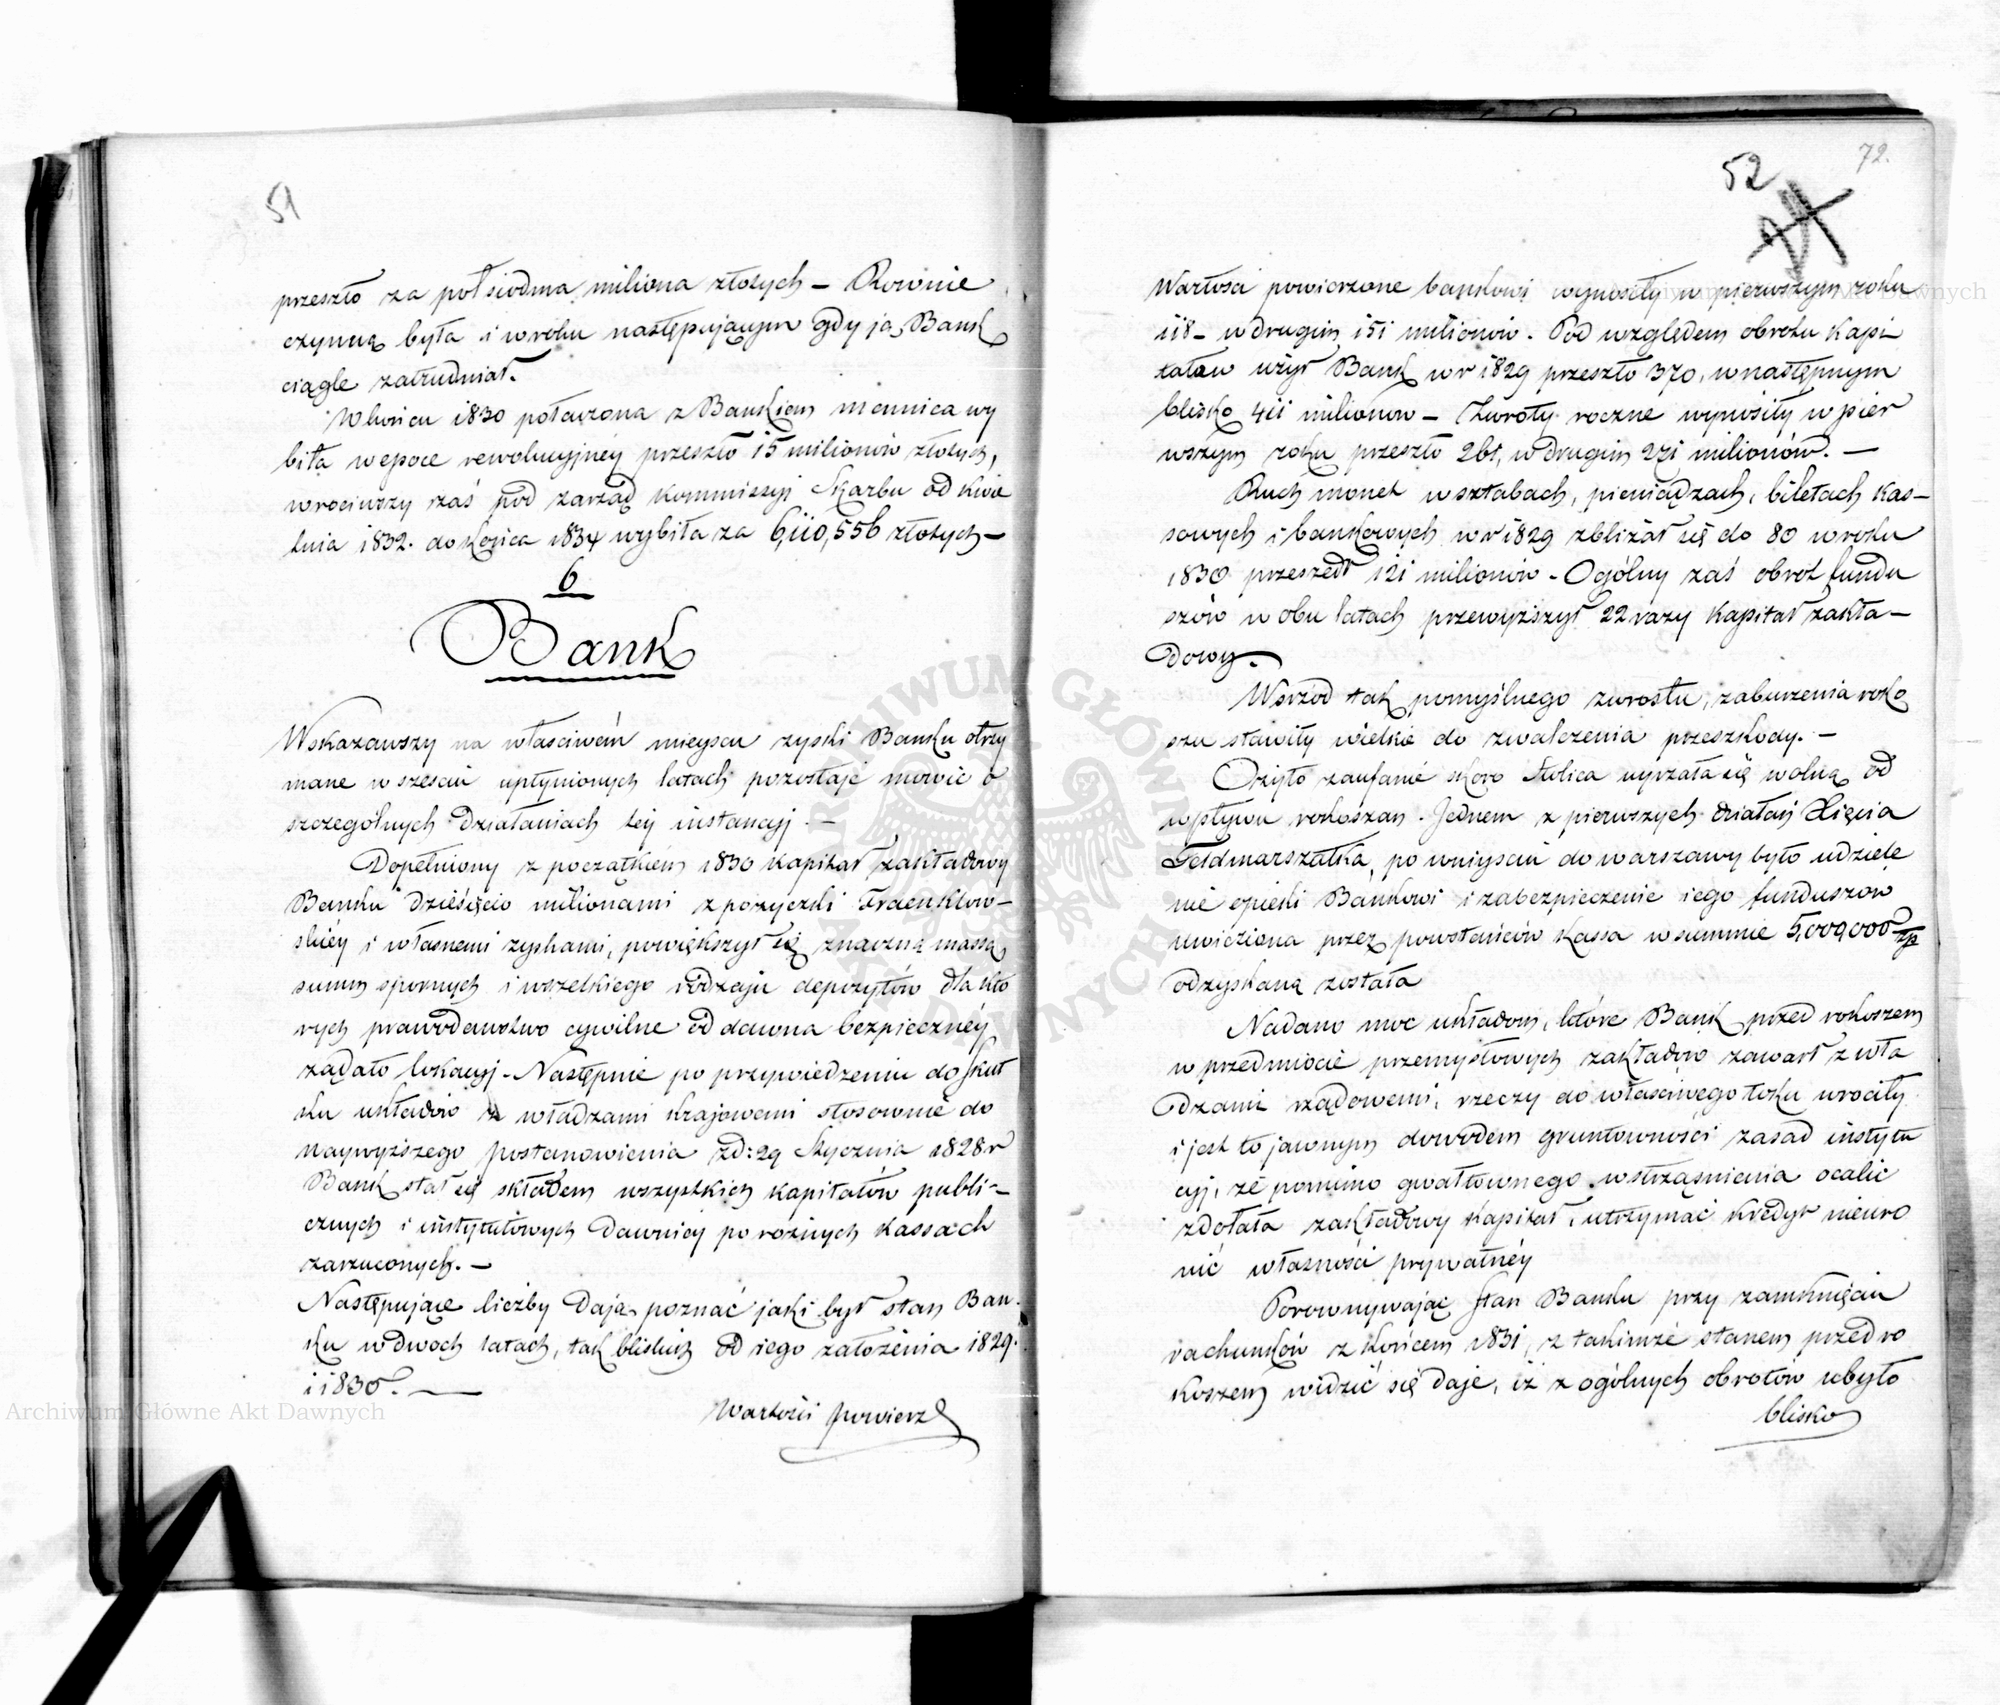 51
przeszło za pół siodma miliona złotych – Rownie
czynną była i w roku następującym gdy ją Bank
ciągle zatrudniał.
W końcu 1830 połaczona z Bankiem mennica wy
biła w epoce rewolucyjnéy przeszło 15 milionów złotych,
wrociwszy zaś pod zarząd kommissyi Skarbu od Kwie
tnia 1832. do końca 1834 wybiła za 6,110,556 złotych –
6
Bank
Wskazawszy na właściwém mieyscu zyski Banku otrzy
mane w sześciu upłynionych latach pozostaje mowić o
szczególnych działaniach tey instancyj. –
Dopełniony z początkiem 1830 kapitał zakładowy
Banku dziesięcio milionami z pożyczki Fraenklow–
skiey i własnemi zyskami, powiększył się znaczną massą
summ spornych i wszelkiego rodzaju depozytów dla kto
rych prawodawstwo cywilne od dawna bezpiecznéy
żądało lokacyj – Następnie po przywiedzeniu do skut
ku układów z władzami krajowemi stosownie do
naywyższego postanowienia z d: 29 Stycznia 1828 r
Bank stał się składem wszystkich kapitałów publi–
cznych i instytutowych dawniey po różnych kassach
zarzuconych. –
Następujące liczby dają poznać jaki był stan Ban
ku w dwoch latach, tak bliskich od iego założenia 1829.
i 1830. —
Wartości powierz
72.
52
Wartości powierzone bankowi wynosiły w pierwszym roku
118 – w drugim 151 milionów. Pod względem obrotu kapi
tałów użył Bank w r 1829 przeszło 370, w następnym
blisko 411 milionow – Zwroty roczne wynosiły w pier
wszym roku przeszło 261, w drugim 271 milionów. —
Ruch monet w sztabach, pieniądzach, biletach kas–
sowych i bankowych w r 1829 zbliżał się do 80 w roku
1830 przeszedł 121 milionów – Ogólny zaś obrot fundu
szów w obu latach przewyższył 22 razy kapitał zakła–
dowy.
Wsrzód tak pomyślnego zwrostu, zaburzenia roko
szu stawiły wielkie do zwalczenia przeszkody. –
Ożyło zaufanie skoro stolica uyrzała się wolną od
wpływu rokoszan. Jednem z pierwszych działań Xięcia
Feldmarszałka, po wniyściu do warszawy było udziele
nie opieki Bankowi i zabezpieczenie iego funduszow
uwieziona przez powstańców kassa w summie 5,000,000 zp
odzyskaną została
Nadano moc układom, które Bank przed rokoszem
w przedmiocie przemysłowych zakładow zawarł z wła
dzami rządowemi, rzeczy do właściwego toku wrociły
i jest to jawnym dowodem gruntowności zasad instytu
cyj, że pomimo gwałtownego wstrząśnienia ocalić
zdołała zakładowy kapitał, utrzymać kredyt nieuro
nić własności prywatnéy
Porownywając stan Banku przy zamknięciu
rachunków z końcem 1831, z takimże stanem przed ro
koszem widzić się daje, iż z ogólnych obrotów ubyło
blisko
Archiwum Główne Akt Dawnych
ARCHIWUM GŁÓWNE AKT DAWNYCH